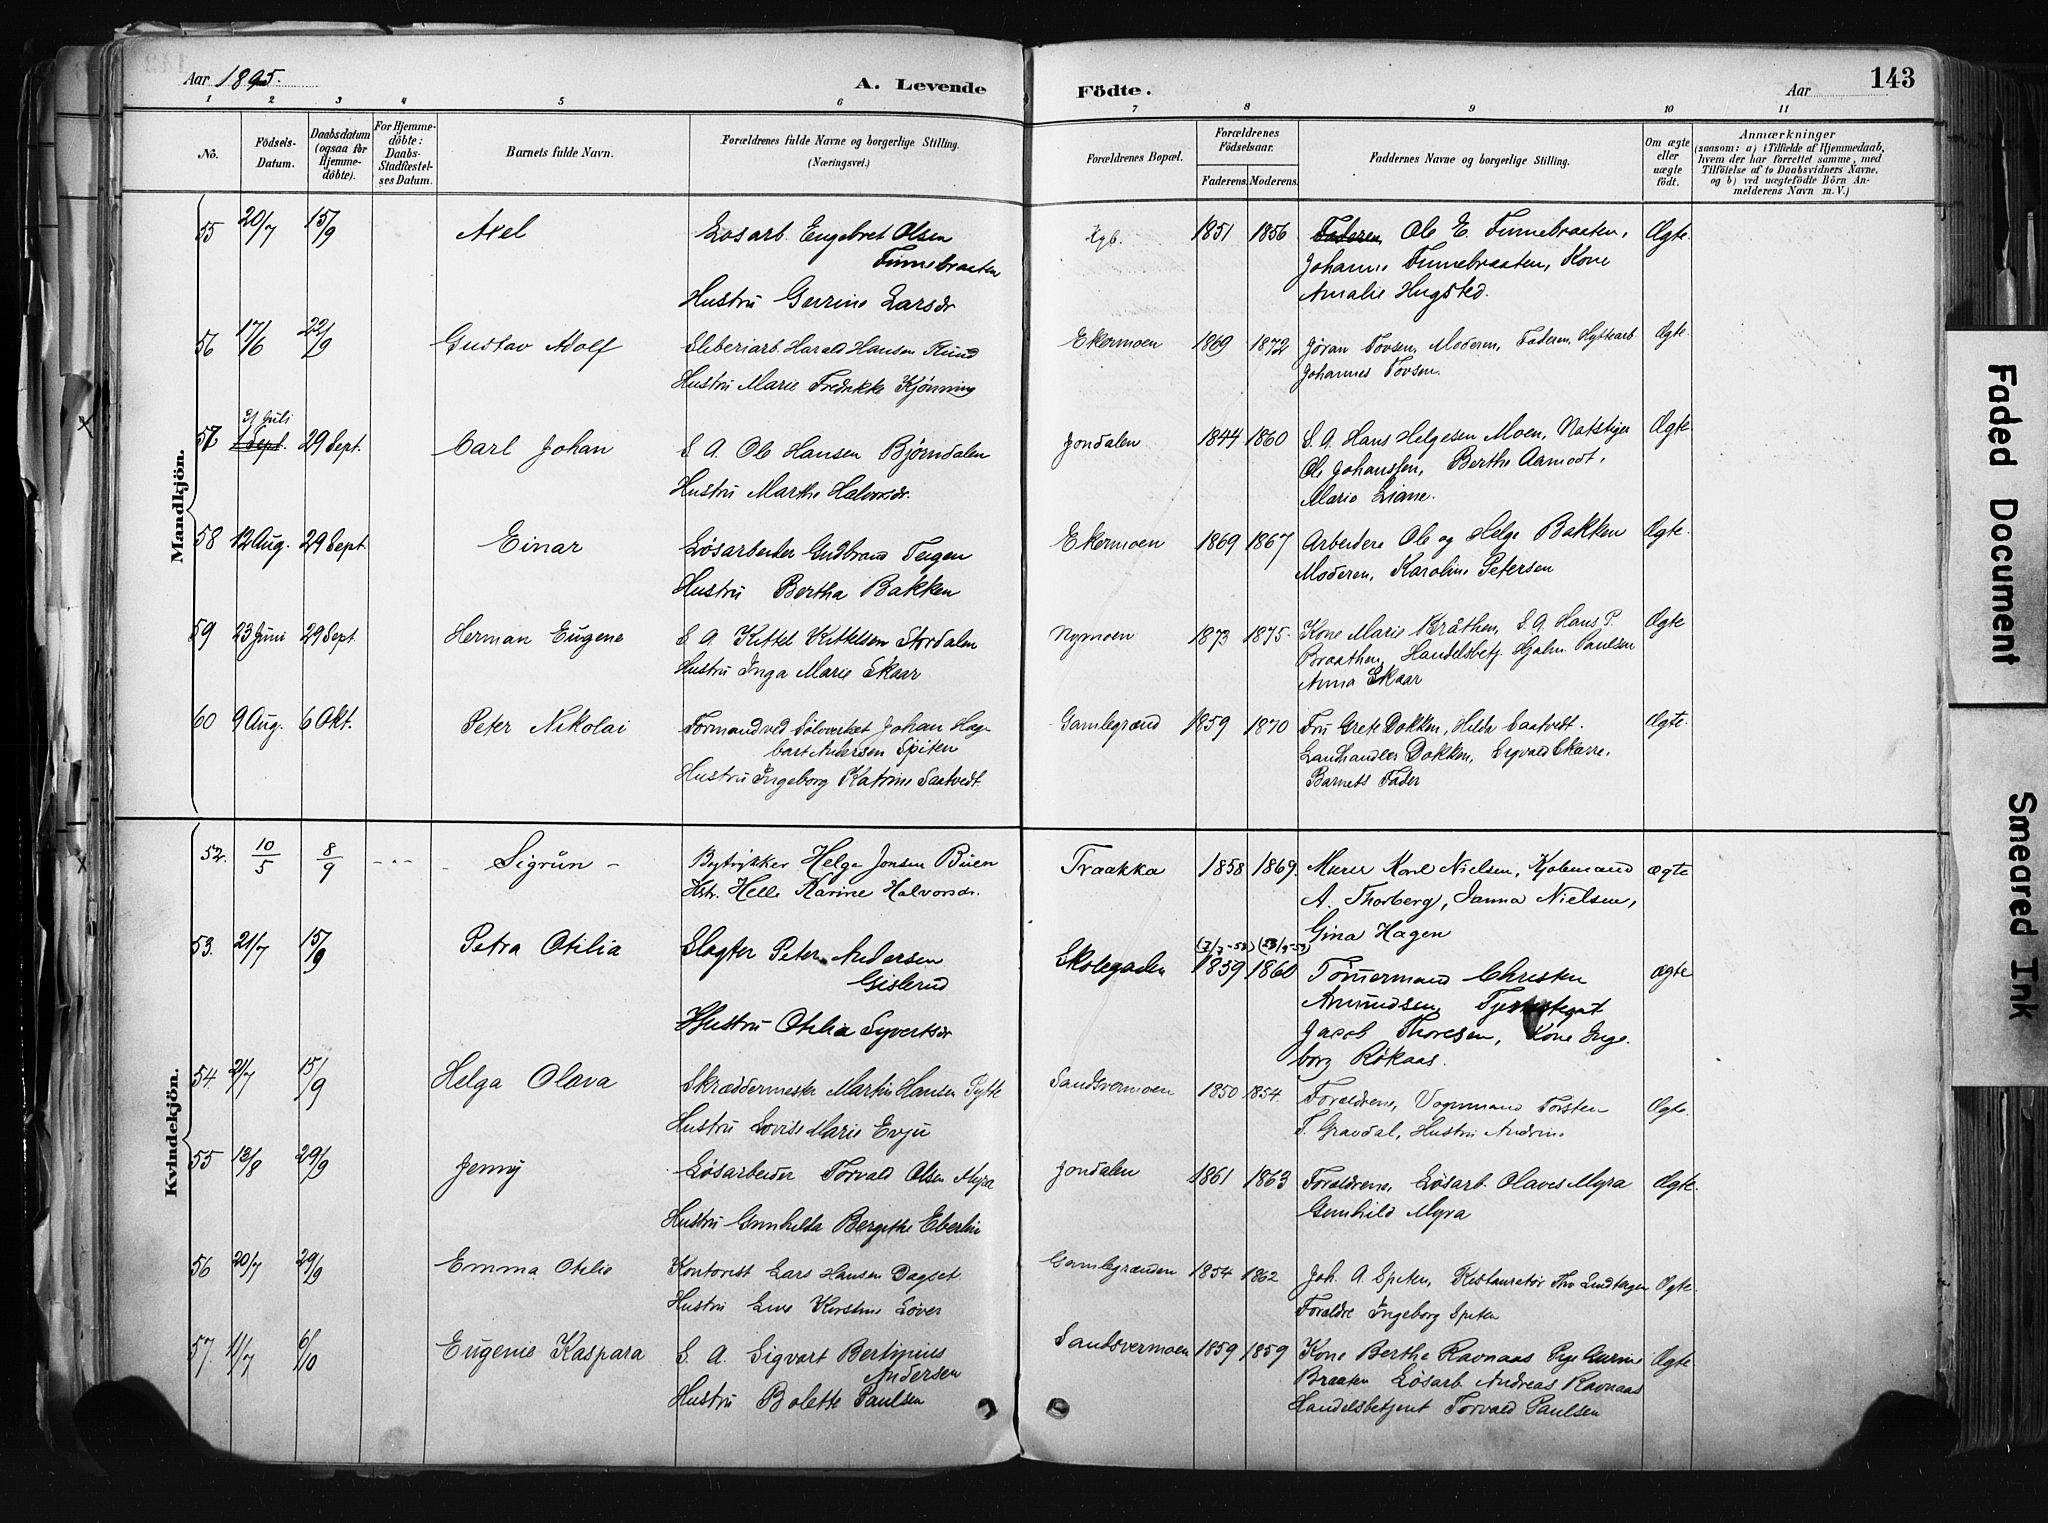 Aar 1895.
A. Levende Födte.
Aar
143
1 2 3 4 5 6 7 8 9 10 11
No.
Födsels-Datum.
Daabsdatum (ogsaa for Hjemmedöbte).
For Hjemmedöbte: Daabs-Stadfæstelses Datum.
Barnets fulde Navn.
Forældrenes fulde Navne og borgerlige Stilling. (Næringsvei.)
Forældrenes Bopæl.
Forældrenes Födselsaar. Faderens. Moderens.
Faddernes Navne og borgerlige Stilling.
Om ægte eller uægte födt.
Anmærkninger (saasom: a) i Tilfælde af Hjemmedaab, hvem der har forrettet samme, med Tilföielse af to Daabsvidners Navne, og b) ved uægtefödte Börn Anmelderens Navn m. V.)
Mandkjön.
55 20/7 15/9 Axel Løsarb. Engebret Olsen Kgb. 1851 1856 Faderen, Ole E. Finnebraaten, Ægte.
Finnebraaten Johanne Finnebraaten, Kone
Hustru Gurine Larsdr Amalie Hugsted.
56 17/6 22/9 Gustav Adolf Sliberiarb. Harald Hansen Rund Ekermoen 1869 1872 Jøran Tovsen, Moderen, Faderen, Hyttearb. Ægte
Hustru Marie Fredrikke Kjønning Johannes Tovsen.
31 Juli
57 1 Sept. 29 Sept. Carl Johan S. A. Ole Hansen Bjørndalen Jondalen 1844 1860 S. A. Hans Helgesen Moen, Natstiger Ægte.
Hustru Marthe Halvorsdr. Ole Johanssen, Berthe Aamodt,
Marie Liane.
58 12 Aug. 29 Sept. Einar Løsarbeider Gudbrand Teigen Ekermoen 1869 1867 Arbeidere Ole og Helge Bakken Ægte.
Hustru Bertha Bakken Moderen, Karoline Petersen
59 23 Juni 29 Sept. Herman Eugene S A Kittel Kittelsen Stordalen Nymoen 1873 1875. Kone Marie Bråthen, S. A. Hans P. Ægte
Hustru Inga Marie Skaar Braathen, Handelsbetj. Hjalm. Paulsen
Anna Skaar
60 9 Aug. 6 Okt. Peter Nikolai Formand ved Sølvverket Johan Hag- Gamlegrænd 1859 1870 Fru Grete Dokken, Hilda Saatvedt. Ægte.
bart Andersen Spiten Landhandler Dokken, Sigvald Skarre,
Hustru Ingeborg Katrine Saatvedt. Barnets Fader
Kvindekjön.
52. 10/5 8/9 - - - Sigrun - Bogtrykker Helge Jonsen Buen Traakka 1858 1869. Murer Karl Nielsen, Kjøbmand ægte
Hstr. Helle Karine Halvorsdr. A. Thorberg, Janna Nielsen,
Gina Hagen
53. 21/7 15/9 Petra Otilia Slagter Peter Andersen Skolegaden 1859 1860 Tømmermand Christen ægte
Gislerud Amundsen,
Hustru Otilia Syvertsdr Jacob Thoresen, Kone Inge-
borg Røkaas.
54. 21/7 15/9 Helga Olava Skræddermester Martin Hansen Pytte Sandsvermoen 1850 1854. Forældrene, Vognmand Torsten Ægte.
Hustru Lovise Marie Evju T. Gravdal, Hustru Andrine
55 13/8 29/9 Jenny Løsarbeider Torvald Olsen Myra Jondalen 1861 1863 Forældrene, Løsarb. Olaves Myra Ægte.
Hustru Gunhilda Bergithe Eberlin Gunhild Myra
56 20/7 29/9 Emma Otelie Kontorist Lars Hansen Dagset. Gamlegrænden 1854 1862 Joh. A. Spiten, Restauratør Ths Lindtegen Ægte.
Hustru Line Kirstine Løver Forældre Ingeborg Spiten
57 11/7 6/10 Eugenie Kaspara S. A. Sigvart Bertinius Sandsvermoen 1859 1859 Kone Berthe Ravnaas Pige Gurine Ægte
Andersen Braaten Løsarb. Andreas Ravnaas
Hustru Bolette Paulsen Handelsbetjent Torvald Paulsen
Faded Document
Smeared Ink